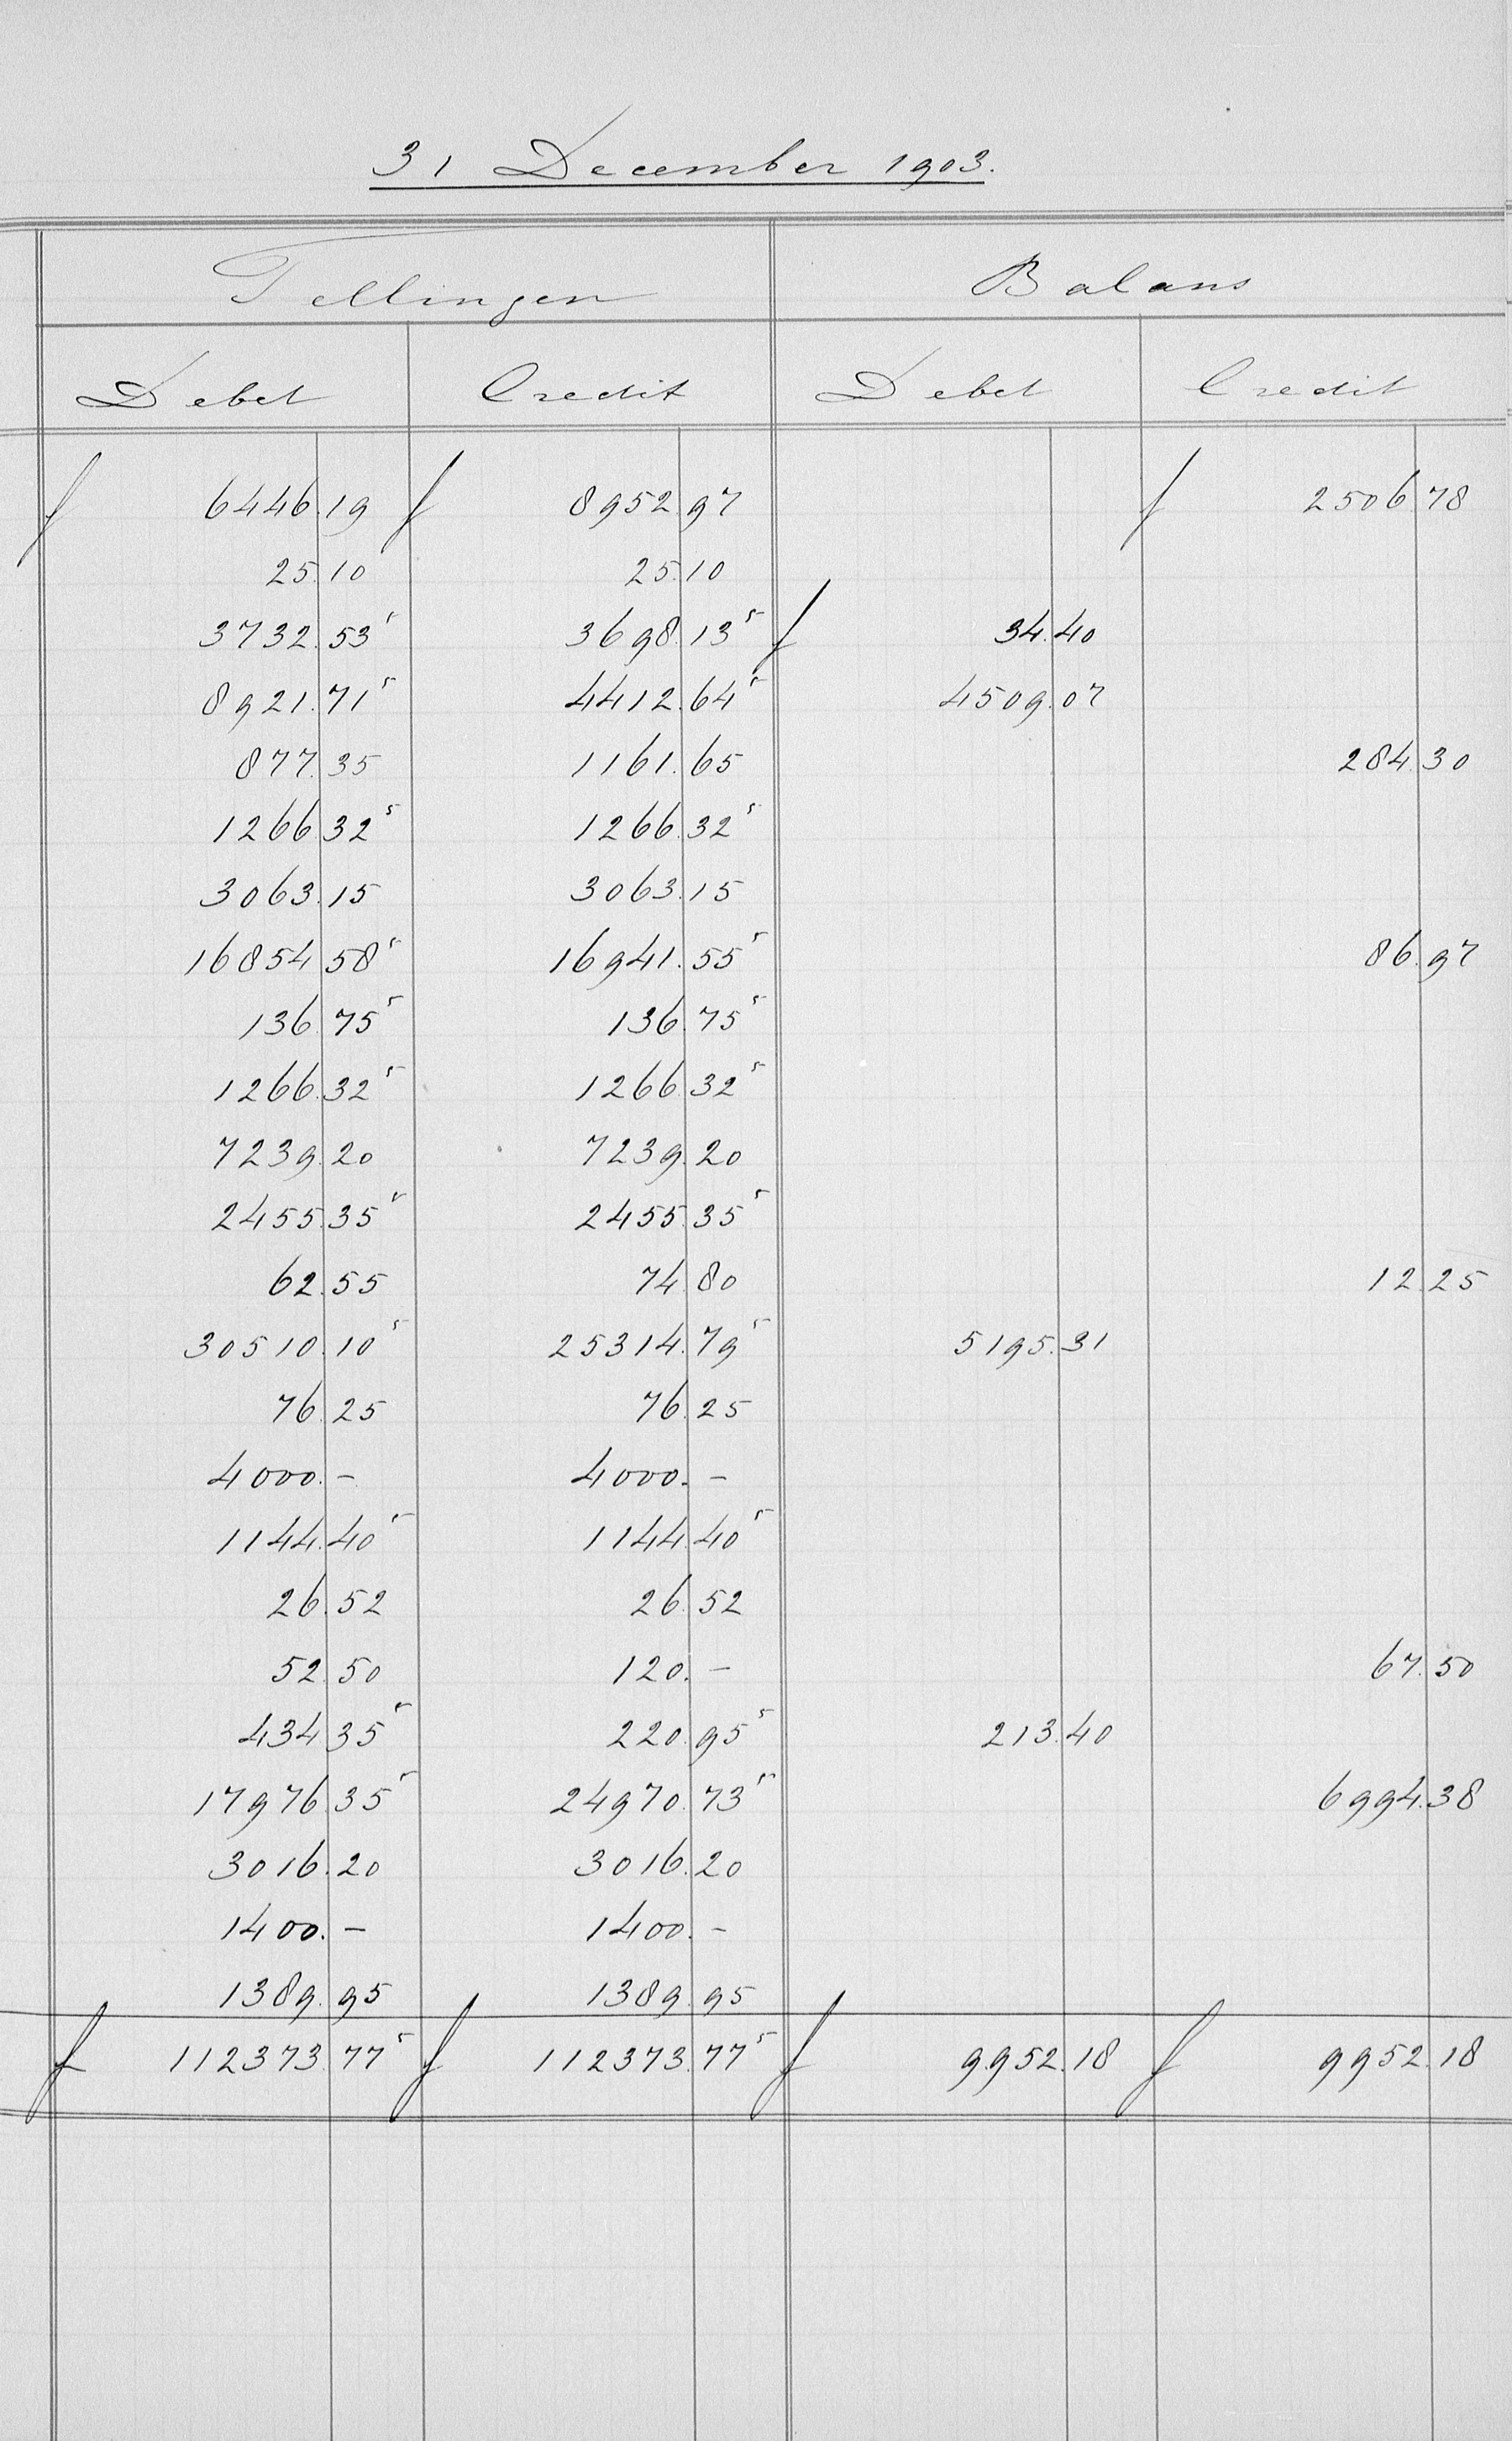 31 December 1903.
Tellingen Balans
Debet Credit Debet Credit
f 6446.19 f 8952.97 f 2506.78
25.10 25.10
3732.53⁵ 3698.13⁵ f 34.40
8921.71⁵ 4412.64⁵ 4509.07
877.35 1161.65 284.30
1266.32⁵ 1266.32⁵
3063.15 3063.15
16854.58⁵ 16941.55⁵ 86.97
136.75⁵ 136.75⁵
1266.32⁵ 1266.32⁵
7239.20 7239.20
2455.35⁵ 2455.35⁵
62.55 74.80 12.25
30510.10⁵ 25314.79⁵ 5195.31
76.25 76.25
4000.- 4000.-
1144.40⁵ 1144.40⁵
26.52 26.52
52.50 120.- 67.50
434.35⁵ 220.95⁵ 213.40
17976.35⁵ 24970.73⁵ 6994.38
3016.20 3016.20
1400.- 1400.-
1389.95 1389.95
f 112373.77⁵ f 112373.77⁵ f 9952.18 f 9952.18